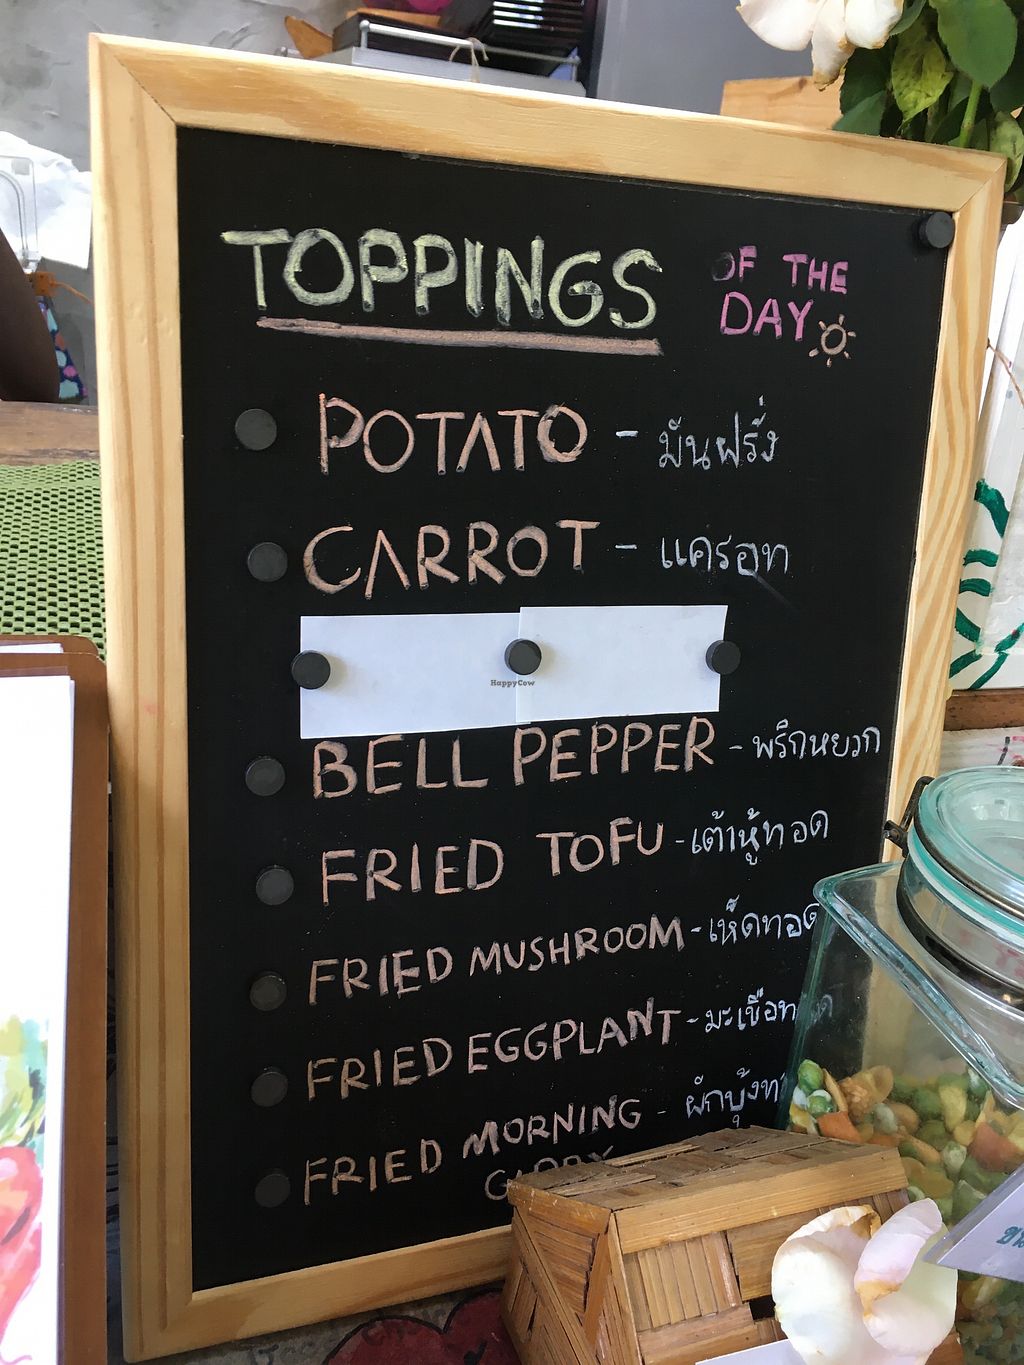 TOPPINGS OF THE
DAY
POTATO - มันฝรั่ง
CARROT - แครอท
HappyCow
BELL PEPPER - พริกหยวก
FRIED TOFU - เต้าหู้ทอด
FRIED MUSHROOM - เห็ดทอด
FRIED EGGPLANT - มะเขือทอด
FRIED MORNING - ผักบุ้งท